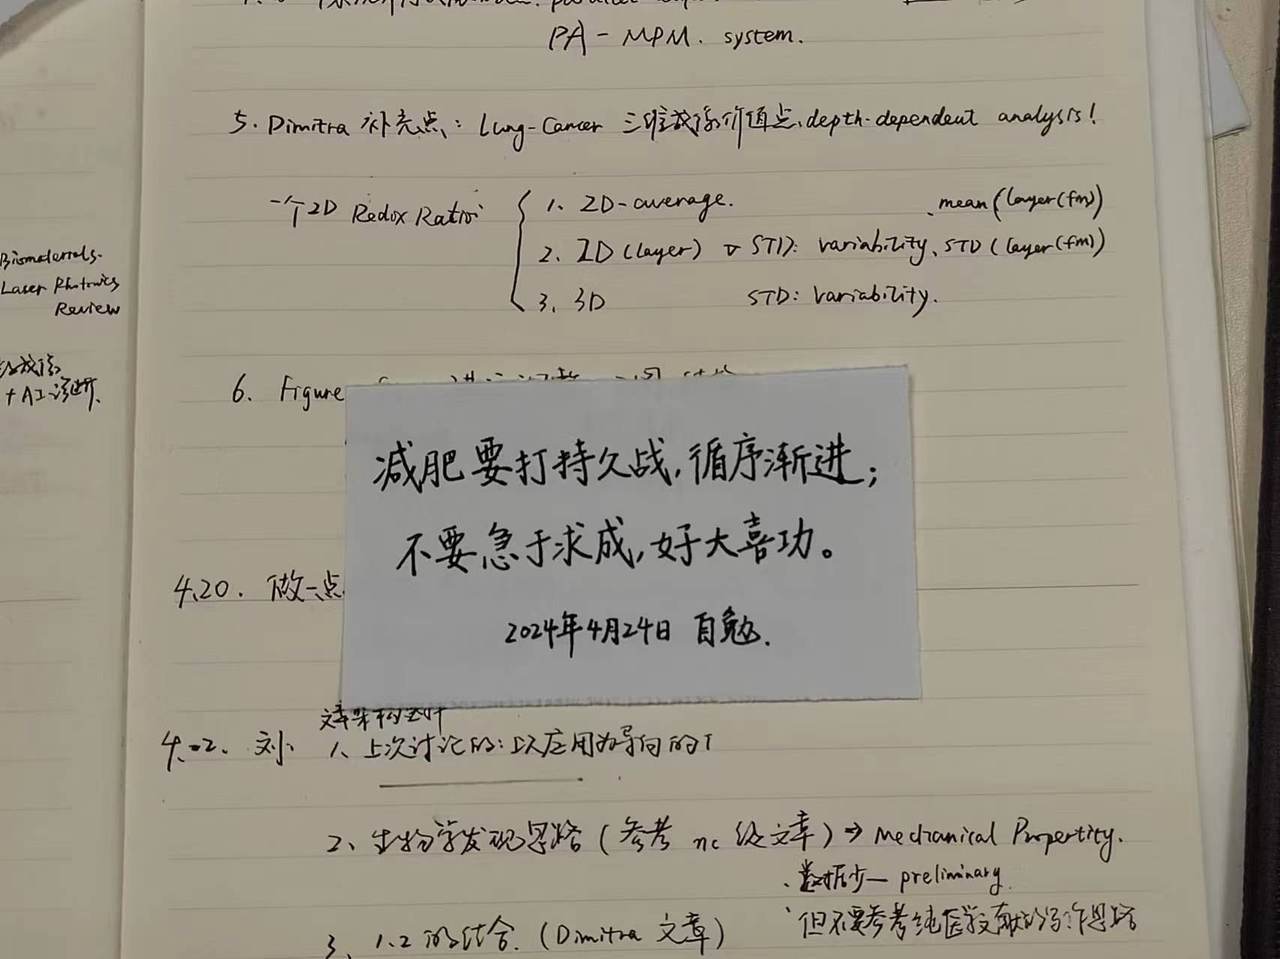 PA-MPM. system.
5. Dimitra 补充点: Lung-Cancer 三维成像价值点, depth-dependent analysis!
一个2D Redox Ratio
1、2D-average.
mean(layer(fm))
2、2D(layer) STD: variability、STD(layer(fm))
3、3D STD: variability.
Biomaterials.
Laser Photonics
Review
+AI诊断.
6. Figure
减肥要打持久战,循序渐进;
不要急于求成,好大喜功。
2024年4月24日 自勉.
4.20. 做一点
刘:
1、上次讨论的:以应用为导向的
2、生物学发现思路(参考 nc 级文章)→ Mechanical Propertity.
、数据少— preliminary
、但不要参考纯医学文献的写作思路
3、1.2的结合.(Dimitra 文章)